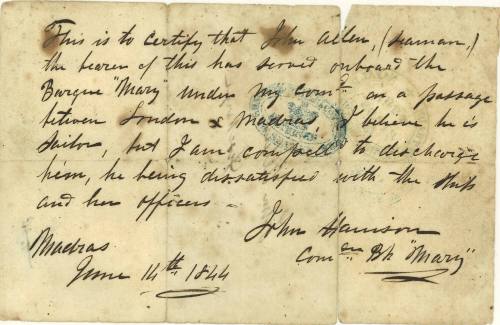 This is to certify that John Allen, (seaman,)
the bearer of this has served onboard the
Barque "Mary" under my Comd on a passage
between London & Madras. I believe he is
Sailor, but I am compelld to discharge
him, he being dissatisfied with the Ship
and her officers –
John Harrison
Comm Bk "Mary"
Madras
June 14th 1844